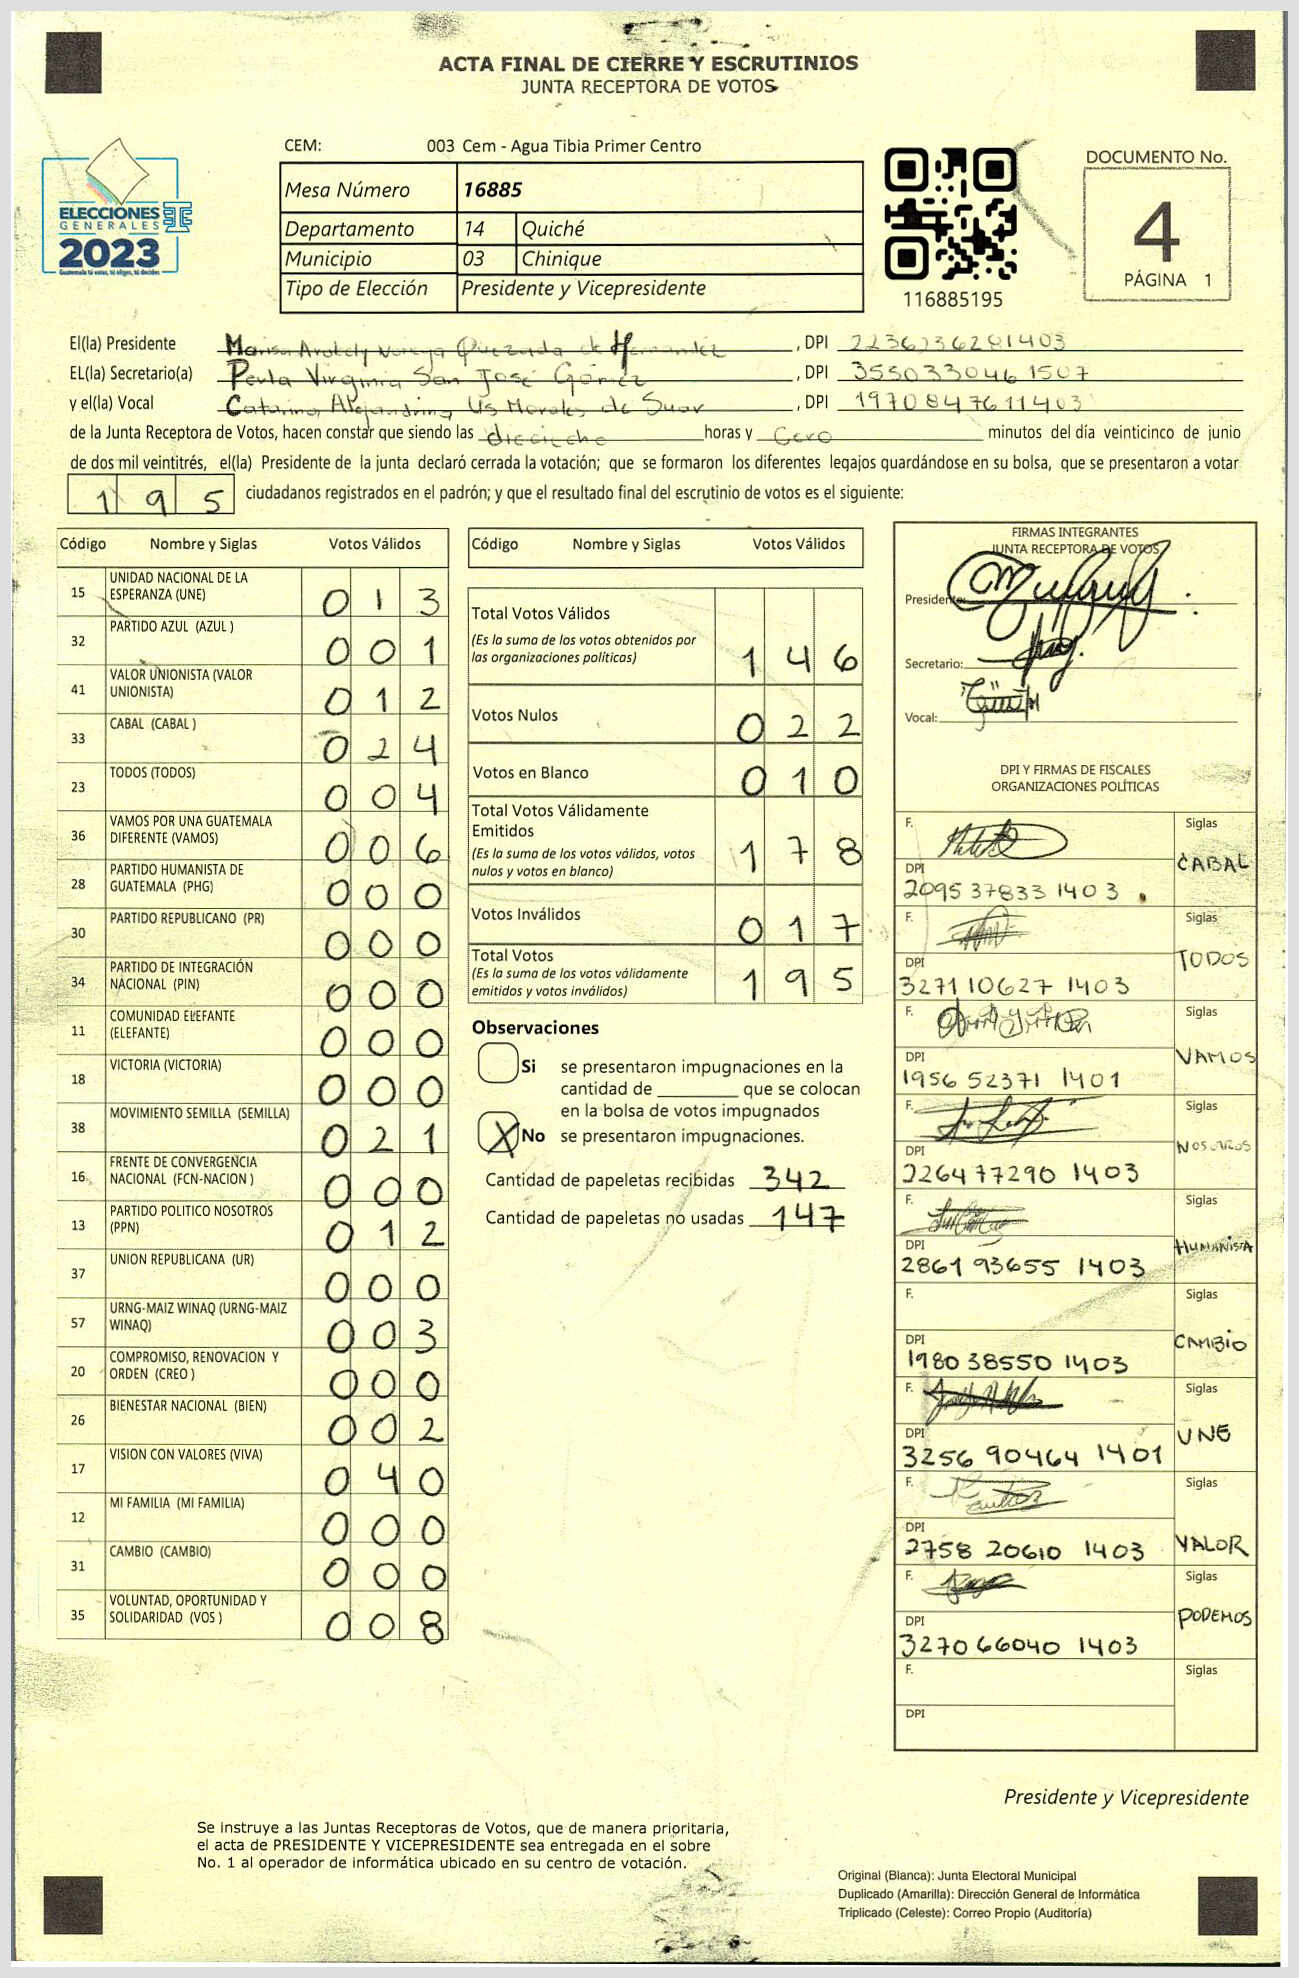 ACTA FINAL DE CIERRE Y ESCRUTINIOS
JUNTA RECEPTORA DE VOTOS
CEM: 003 Cem - Agua Tibia Primer Centro
Mesa Número 16885
Departamento 14 Quiché
Municipio 03 Chinique
Tipo de Elección Presidente y Vicepresidente
ELECCIONES
GENERALES
2023
Guatemala tú votas, tú eliges, tú decides
116885195
DOCUMENTO No.
4
PÁGINA 1
El(la) Presidente Quezada de Hernández, DPI
EL(la) Secretario(a) Perla Virginia San José Gómez, DPI 355033046 1507
y el(la) Vocal Catarina Alejandrina Us Morales de Suar, DPI 1970847611403
de la Junta Receptora de Votos, hacen constar que siendo las dieciocho horas y Cero minutos del día veinticinco de junio
de dos mil veintitrés, el(la) Presidente de la junta declaró cerrada la votación; que se formaron los diferentes legajos guardándose en su bolsa, que se presentaron a votar
195 ciudadanos registrados en el padrón; y que el resultado final del escrutinio de votos es el siguiente:
Código Nombre y Siglas Votos Válidos
15 UNIDAD NACIONAL DE LA ESPERANZA (UNE) 013
32 PARTIDO AZUL (AZUL ) 001
41 VALOR UNIONISTA (VALOR UNIONISTA) 012
33 CABAL (CABAL ) 024
23 TODOS (TODOS) 004
36 VAMOS POR UNA GUATEMALA DIFERENTE (VAMOS) 006
28 PARTIDO HUMANISTA DE GUATEMALA (PHG) 000
30 PARTIDO REPUBLICANO (PR) 000
34 PARTIDO DE INTEGRACIÓN NACIONAL (PIN) 000
11 COMUNIDAD ELEFANTE (ELEFANTE) 000
18 VICTORIA (VICTORIA) 000
38 MOVIMIENTO SEMILLA (SEMILLA) 021
16 FRENTE DE CONVERGENCIA NACIONAL (FCN-NACION ) 000
13 PARTIDO POLITICO NOSOTROS (PPN) 012
37 UNION REPUBLICANA (UR) 000
57 URNG-MAIZ WINAQ (URNG-MAIZ WINAQ) 003
20 COMPROMISO, RENOVACION Y ORDEN (CREO ) 000
26 BIENESTAR NACIONAL (BIEN) 002
17 VISION CON VALORES (VIVA) 040
12 MI FAMILIA (MI FAMILIA) 000
31 CAMBIO (CAMBIO) 000
35 VOLUNTAD, OPORTUNIDAD Y SOLIDARIDAD (VOS ) 008
Código Nombre y Siglas Votos Válidos
Total Votos Válidos 146
(Es la suma de los votos obtenidos por
las organizaciones políticas)
Votos Nulos 022
Votos en Blanco 010
Total Votos Válidamente
Emitidos 178
(Es la suma de los votos válidos, votos
nulos y votos en blanco)
Votos Inválidos 017
Total Votos 195
(Es la suma de los votos válidamente
emitidos y votos inválidos)
Observaciones
Si se presentaron impugnaciones en la
cantidad de ________ que se colocan
en la bolsa de votos impugnados
X No se presentaron impugnaciones.
Cantidad de papeletas recibidas 342
Cantidad de papeletas no usadas 147
FIRMAS INTEGRANTES
JUNTA RECEPTORA DE VOTOS
Presidente:
Secretario:
Vocal:
DPI Y FIRMAS DE FISCALES
ORGANIZACIONES POLÍTICAS
F. Siglas CABAL
DPI 2095 37833 1403
F. Siglas TODOS
DPI 3271 10627 1403
F. Siglas VAMOS
DPI 1956 52371 1401
F. Siglas NOSOTROS
DPI 2264 77290 1403
F. Siglas HUMANISTA
DPI 2861 93655 1403
F. Siglas CAMBIO
DPI 1980 38550 1403
F. Siglas UNE
DPI 3256 90464 1401
F. Siglas VALOR
DPI 2758 20610 1403
F. Siglas PODEMOS
DPI 3270 66040 1403
F. Siglas
DPI
Presidente y Vicepresidente
Se instruye a las Juntas Receptoras de Votos, que de manera prioritaria,
el acta de PRESIDENTE Y VICEPRESIDENTE sea entregada en el sobre
No. 1 al operador de informática ubicado en su centro de votación.
Original (Blanca): Junta Electoral Municipal
Duplicado (Amarilla): Dirección General de Informática
Triplicado (Celeste): Correo Propio (Auditoría)